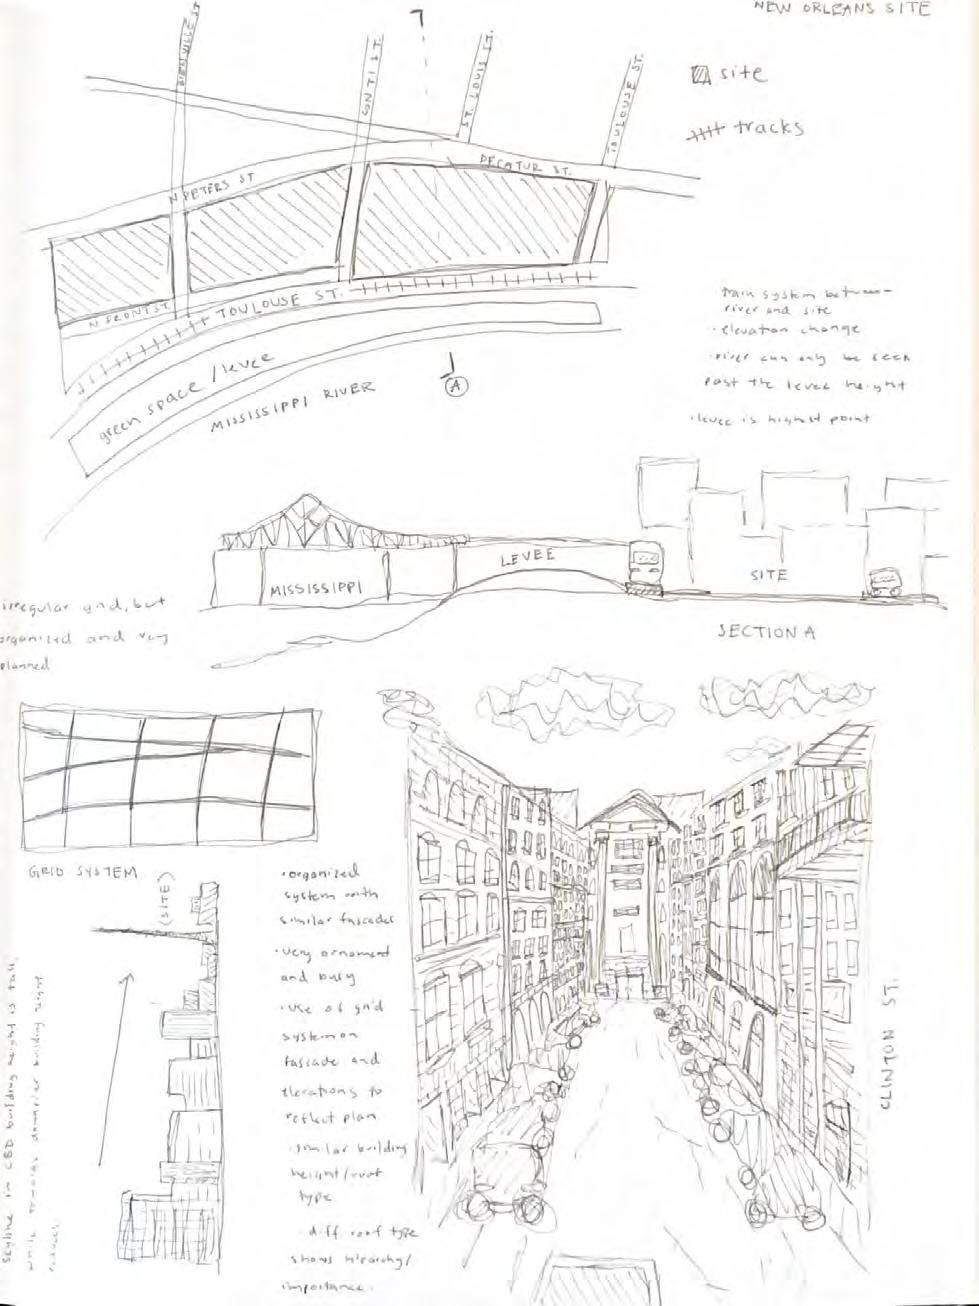 NEW ORLEANS SITE
BIENVILLE ST
CONTI ST.
ST. LOUIS ST.
TOULOUSE ST.
site
tracks
DECATUR ST.
N PETERS ST
N FRONT ST.
TOULOUSE ST.
green space / levee
MISSISSIPPI RIVER
A
train system between
river and site
· elevation change
· river can only be seen
past the levee height
· levee is highest point
LEVEE
MISSISSIPPI
SITE
SECTION A
irregular grid, but
organized and very
planned
GRID SYSTEM
(SITE)
skyline in CBD building height is tall,
while towards downriver building height
reduces.
· organized
system with
similar fascades
· very ornament
and busy
· use of grid
system on
fascade and
elevations to
reflect plan
· similar building
height/roof
type
· diff roof type
shows hierarchy/
importance.
CLINTON ST.